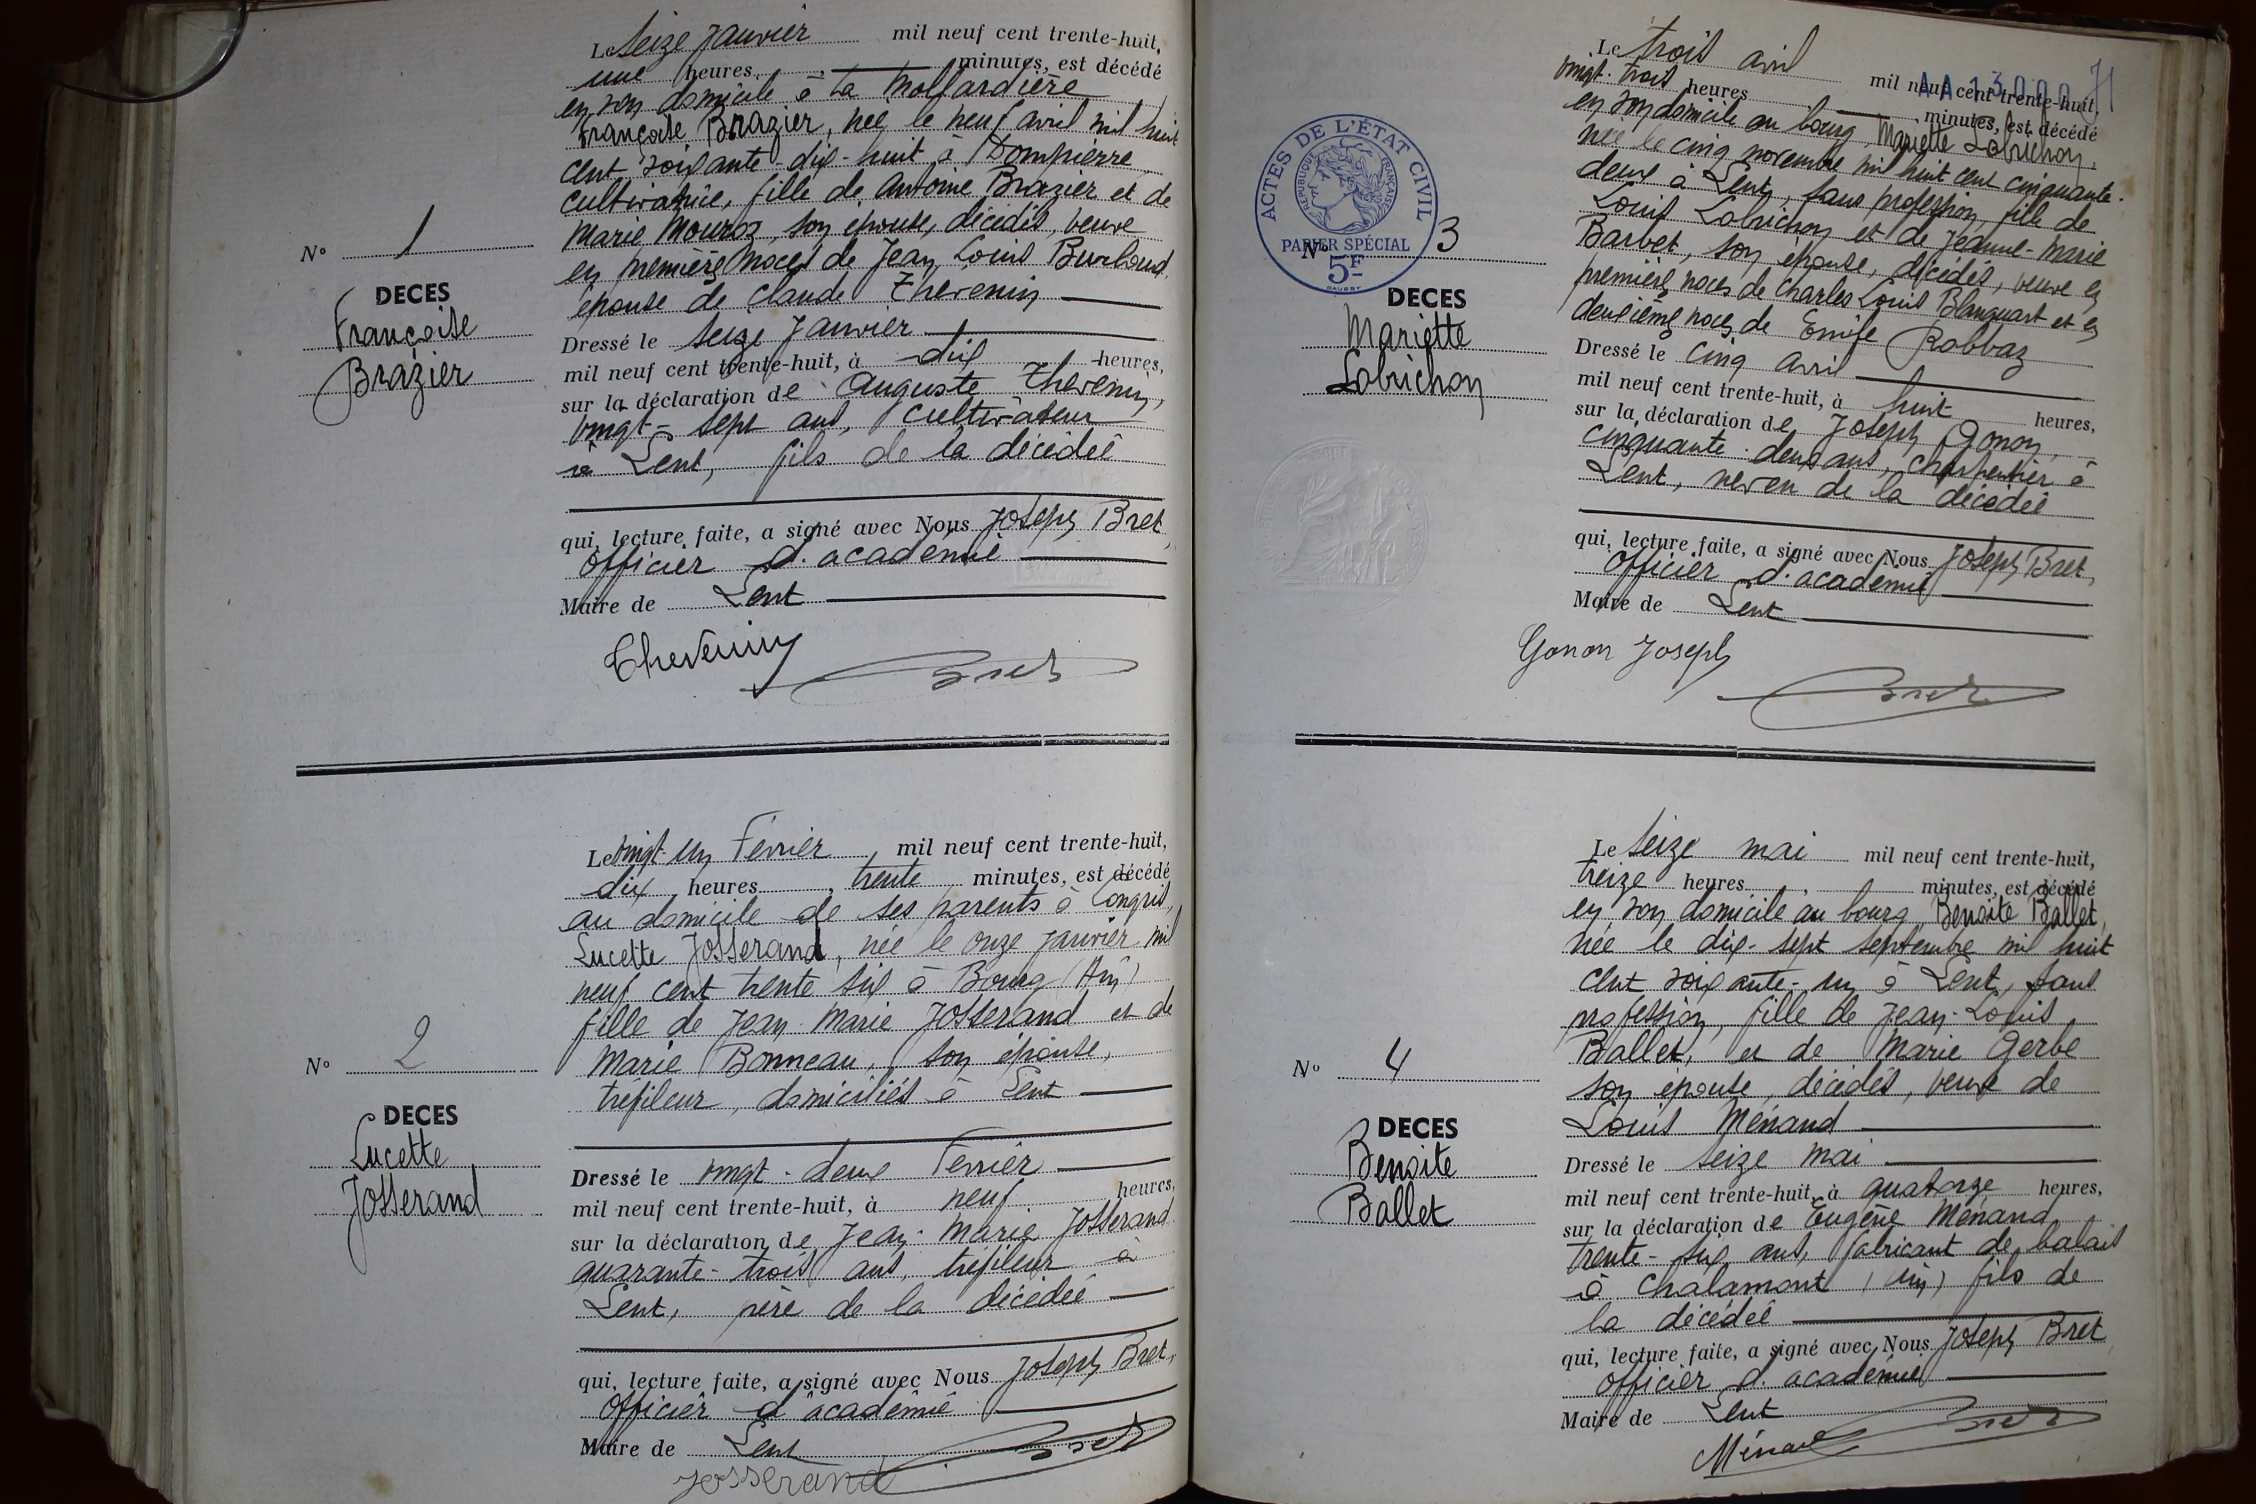 Le seize Janvier mil neuf cent trente-huit,
une heures, minutes, est décédé
en son domicile à la Mollardière
Françoise Brazier, née le neuf avril mil huit
cent soixante-dix-huit à Dompierre
cultivatrice, fille de Antoine Brazier et de
Marie Mouroz, son épouse, décédés, veuve
en premières noces de Jean Louis Burloud
épouse de Claude Thevenin
N° 1
DECES
Françoise
Brazier
Dressé le seize Janvier
mil neuf cent trente-huit, à dix heures,
sur la déclaration de Auguste Thevenin,
vingt-sept ans, cultivateur
à Lent, fils de la décédée
qui, lecture faite, a signé avec Nous Joseph Bret,
officier d'académie
Maire de Lent
Thevenin
Bret
Le vingt-un Février mil neuf cent trente-huit,
dix heures, trente minutes, est décédé
au domicile de ses parents à Longris,
Lucette Josserand, née le onze janvier mil
neuf cent trente six à Bourg (Ain)
fille de Jean Marie Josserand et de
Marie Bonneau, son épouse,
tréfileur, domiciliés à Lent
N° 2
DECES
Lucette
Josserand
Dressé le vingt-deux Février
mil neuf cent trente-huit, à neuf heures,
sur la déclaration de Jean-Marie Josserand
quarante-trois ans, tréfileur à
Lent, père de la décédée
qui, lecture faite, a signé avec Nous Joseph Bret,
officier d'académie
Maire de Lent
Bret
Josserand
Le trois avril mil neuf cent trente-huit,
AA13000 71
vingt-trois heures minutes, est décédé
en son domicile au bourg, Mariette Lobrichon,
née le cinq novembre mil huit cent cinquante-
deux à Lent, sans profession, fille de
Louis Lobrichon et de Jeanne-Marie
Barbet, son épouse, décédés, veuve en
premières noces de Charles Louis Blanquart et en
deuxièmes noces de Emile Robbaz
ACTES DE L'ÉTAT CIVIL
REPUBLIQUE FRANÇAISE
PAPIER SPÉCIAL
5F
N° 3
DECES
Mariette
Lobrichon
Dressé le cinq avril
mil neuf cent trente-huit, à huit heures,
sur la déclaration de Joseph Gonon,
cinquante-deux ans, charpentier à
Lent, neveu de la décédée
qui, lecture faite, a signé avec Nous Joseph Bret,
officier d'académie
Maire de Lent
Gonon Joseph
Bret
Le seize mai mil neuf cent trente-huit,
treize heures, minutes, est décédé
en son domicile au bourg, Benoite Ballet,
née le dix-sept septembre mil huit
cent soixante-un à Lent, sans
profession, fille de Jean-Louis
Ballet, et de Marie Gerbe
son épouse, décédés, veuve de
Louis Ménand
N° 4
DECES
Benoite
Ballet
Dressé le seize mai
mil neuf cent trente-huit, à quatorze heures,
sur la déclaration de Eugène Ménand
trente-six ans, fabricant de balais
à Chalamont (Ain) fils de
la décédée
qui, lecture faite, a signé avec Nous Joseph Bret,
officier d'académie
Maire de Lent
Bret
Ménand